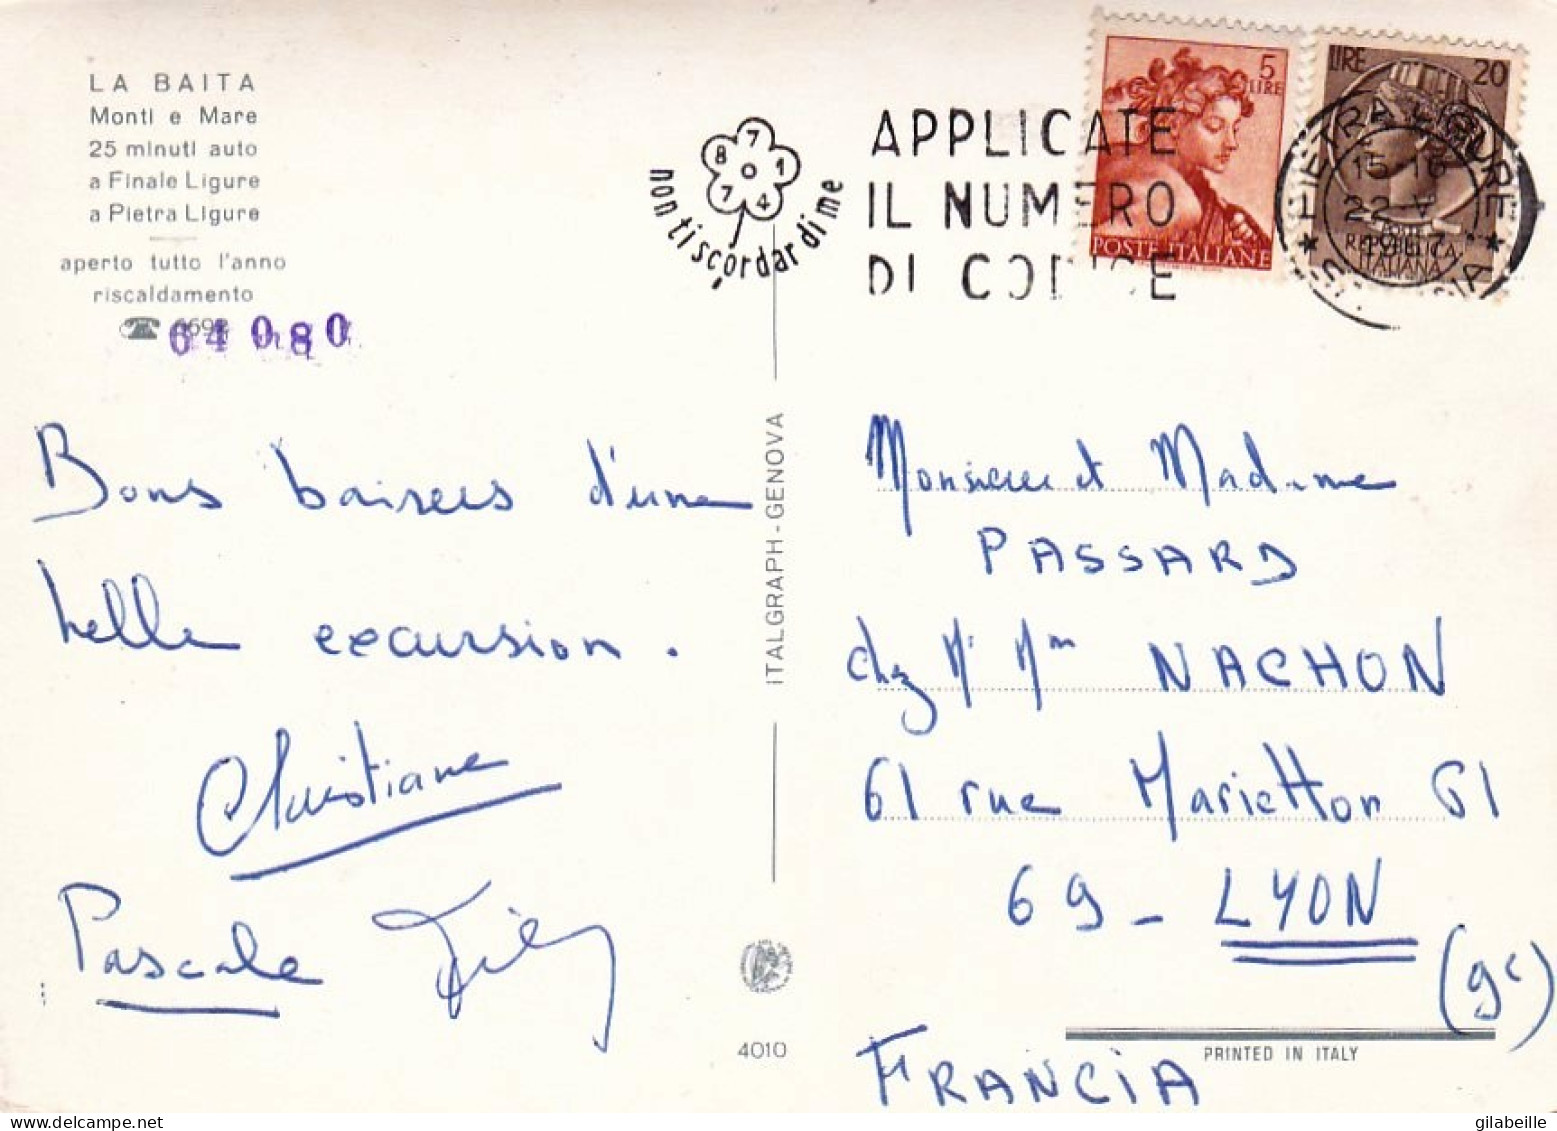 LA BAITA
Monti e Mare
25 minuti auto
a Finale Ligure
a Pietra Ligure
aperto tutto l'anno
riscaldamento
64080
Bons baisers d'une
belle excursion.
Christiane
Pascale
ITALGRAPH - GENOVA
4010
8 7 1 4 7
non ti scordar di me
APPLICATE
IL NUMERO
DI CODICE
5
LIRE
POSTE ITALIANE
LIRE 20
REPUBBLICA
ITALIANA
PIETRA LIGURE
15-16
22 V
Monsieur et Madame
PASSARD
chez Mr Mm NACHON
61 rue Marietton 61
69 - LYON
(9e)
FRANCIA
PRINTED IN ITALY
delcampe.net
gilabeille